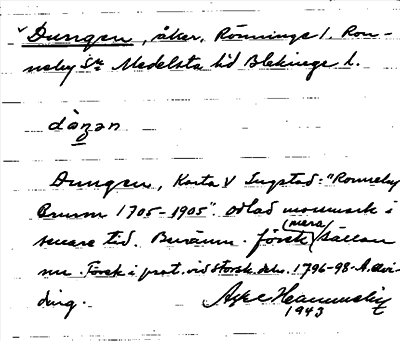 Dungen, åker, Rönninge 1, Ron-
neby Sn Medelsta hd Blekinge l.
dàŋən
Dungen, Karta V Ingstad: "Ronneby
Brunn 1705-1905". odlad mossmark i
senare tid. Benämn. försk (mera) sällan
nu. Försk i prot. vid storsk. dels. 1796-98.
ding.
Åke
1943